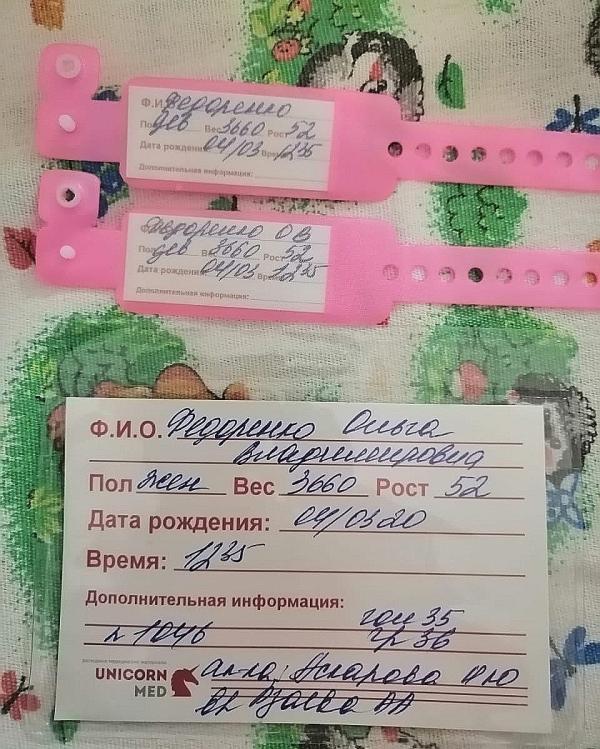 Ф.И.О. Федоренко
Пол дев Вес 3660 Рост 52
Дата рождения 04/03 Время 1235
Дополнительная информация:
Федоренко О В
Пол дев Вес 3660 Рост 52
Дата рождения 04/03 1235
Дополнительная информация:
Ф.И.О. Федоренко Ольга
Владимировна
Пол жен Вес 3660 Рост 52
Дата рождения: 04/03 20
Время: 1235
Дополнительная информация:
гол 35
л 1046 гр 36
UNICORN
MED